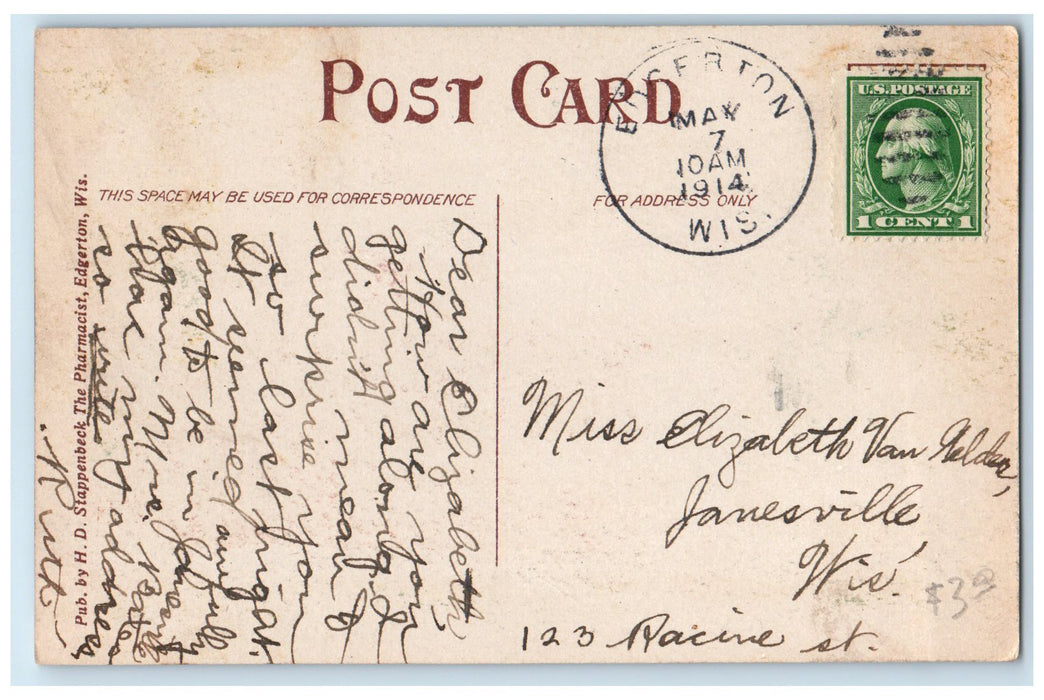 POST CARD
THIS SPACE MAY BE USED FOR CORRESPONDENCE
FOR ADDRESS ONLY
EDGERTON
MAY
7
10 AM
1914
WIS.
U.S. POSTAGE
1 CENT 1
Dear Elizabeth
How are you
getting along. I
didn't mean to
surprise you
so last night.
It seemed awfully
good to be in Janesville
again. Mrs. Bates
has my address,
so write
Ruth
Pub. by H. D. Stappenbeck The Pharmacist, Edgerton, Wis.
Miss Elizabeth Van Gelder,
Janesville
Wis.
123 Racine st.
$3.00